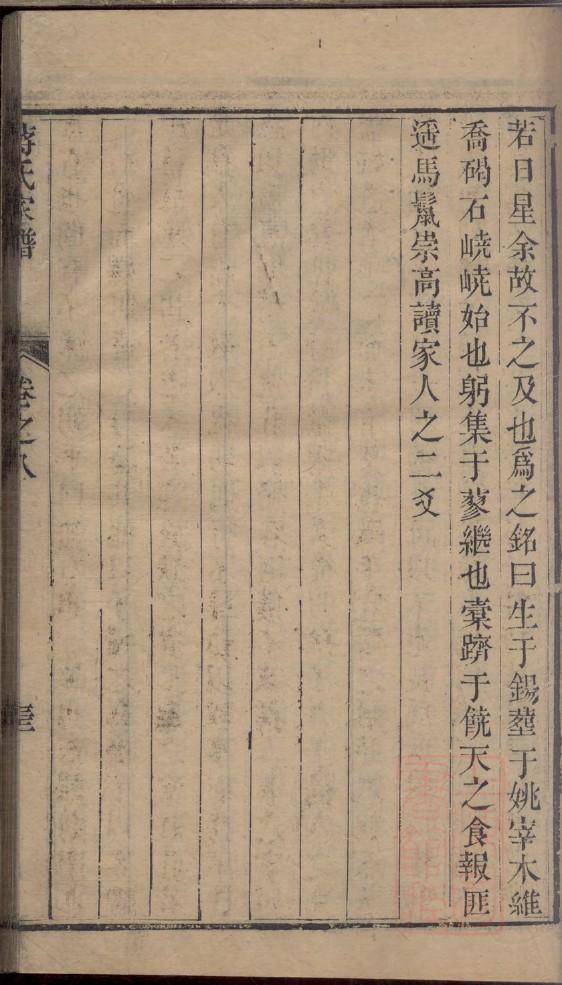 若日星余故不之及也爲之銘曰生于錫塟于姚宰木維
喬碣石嶢嶢始也躬集于蓼繼也槖躋于饒天之食報匪
遥馬鬛崇高讀家人之二爻
蔣氏家譜 卷之八